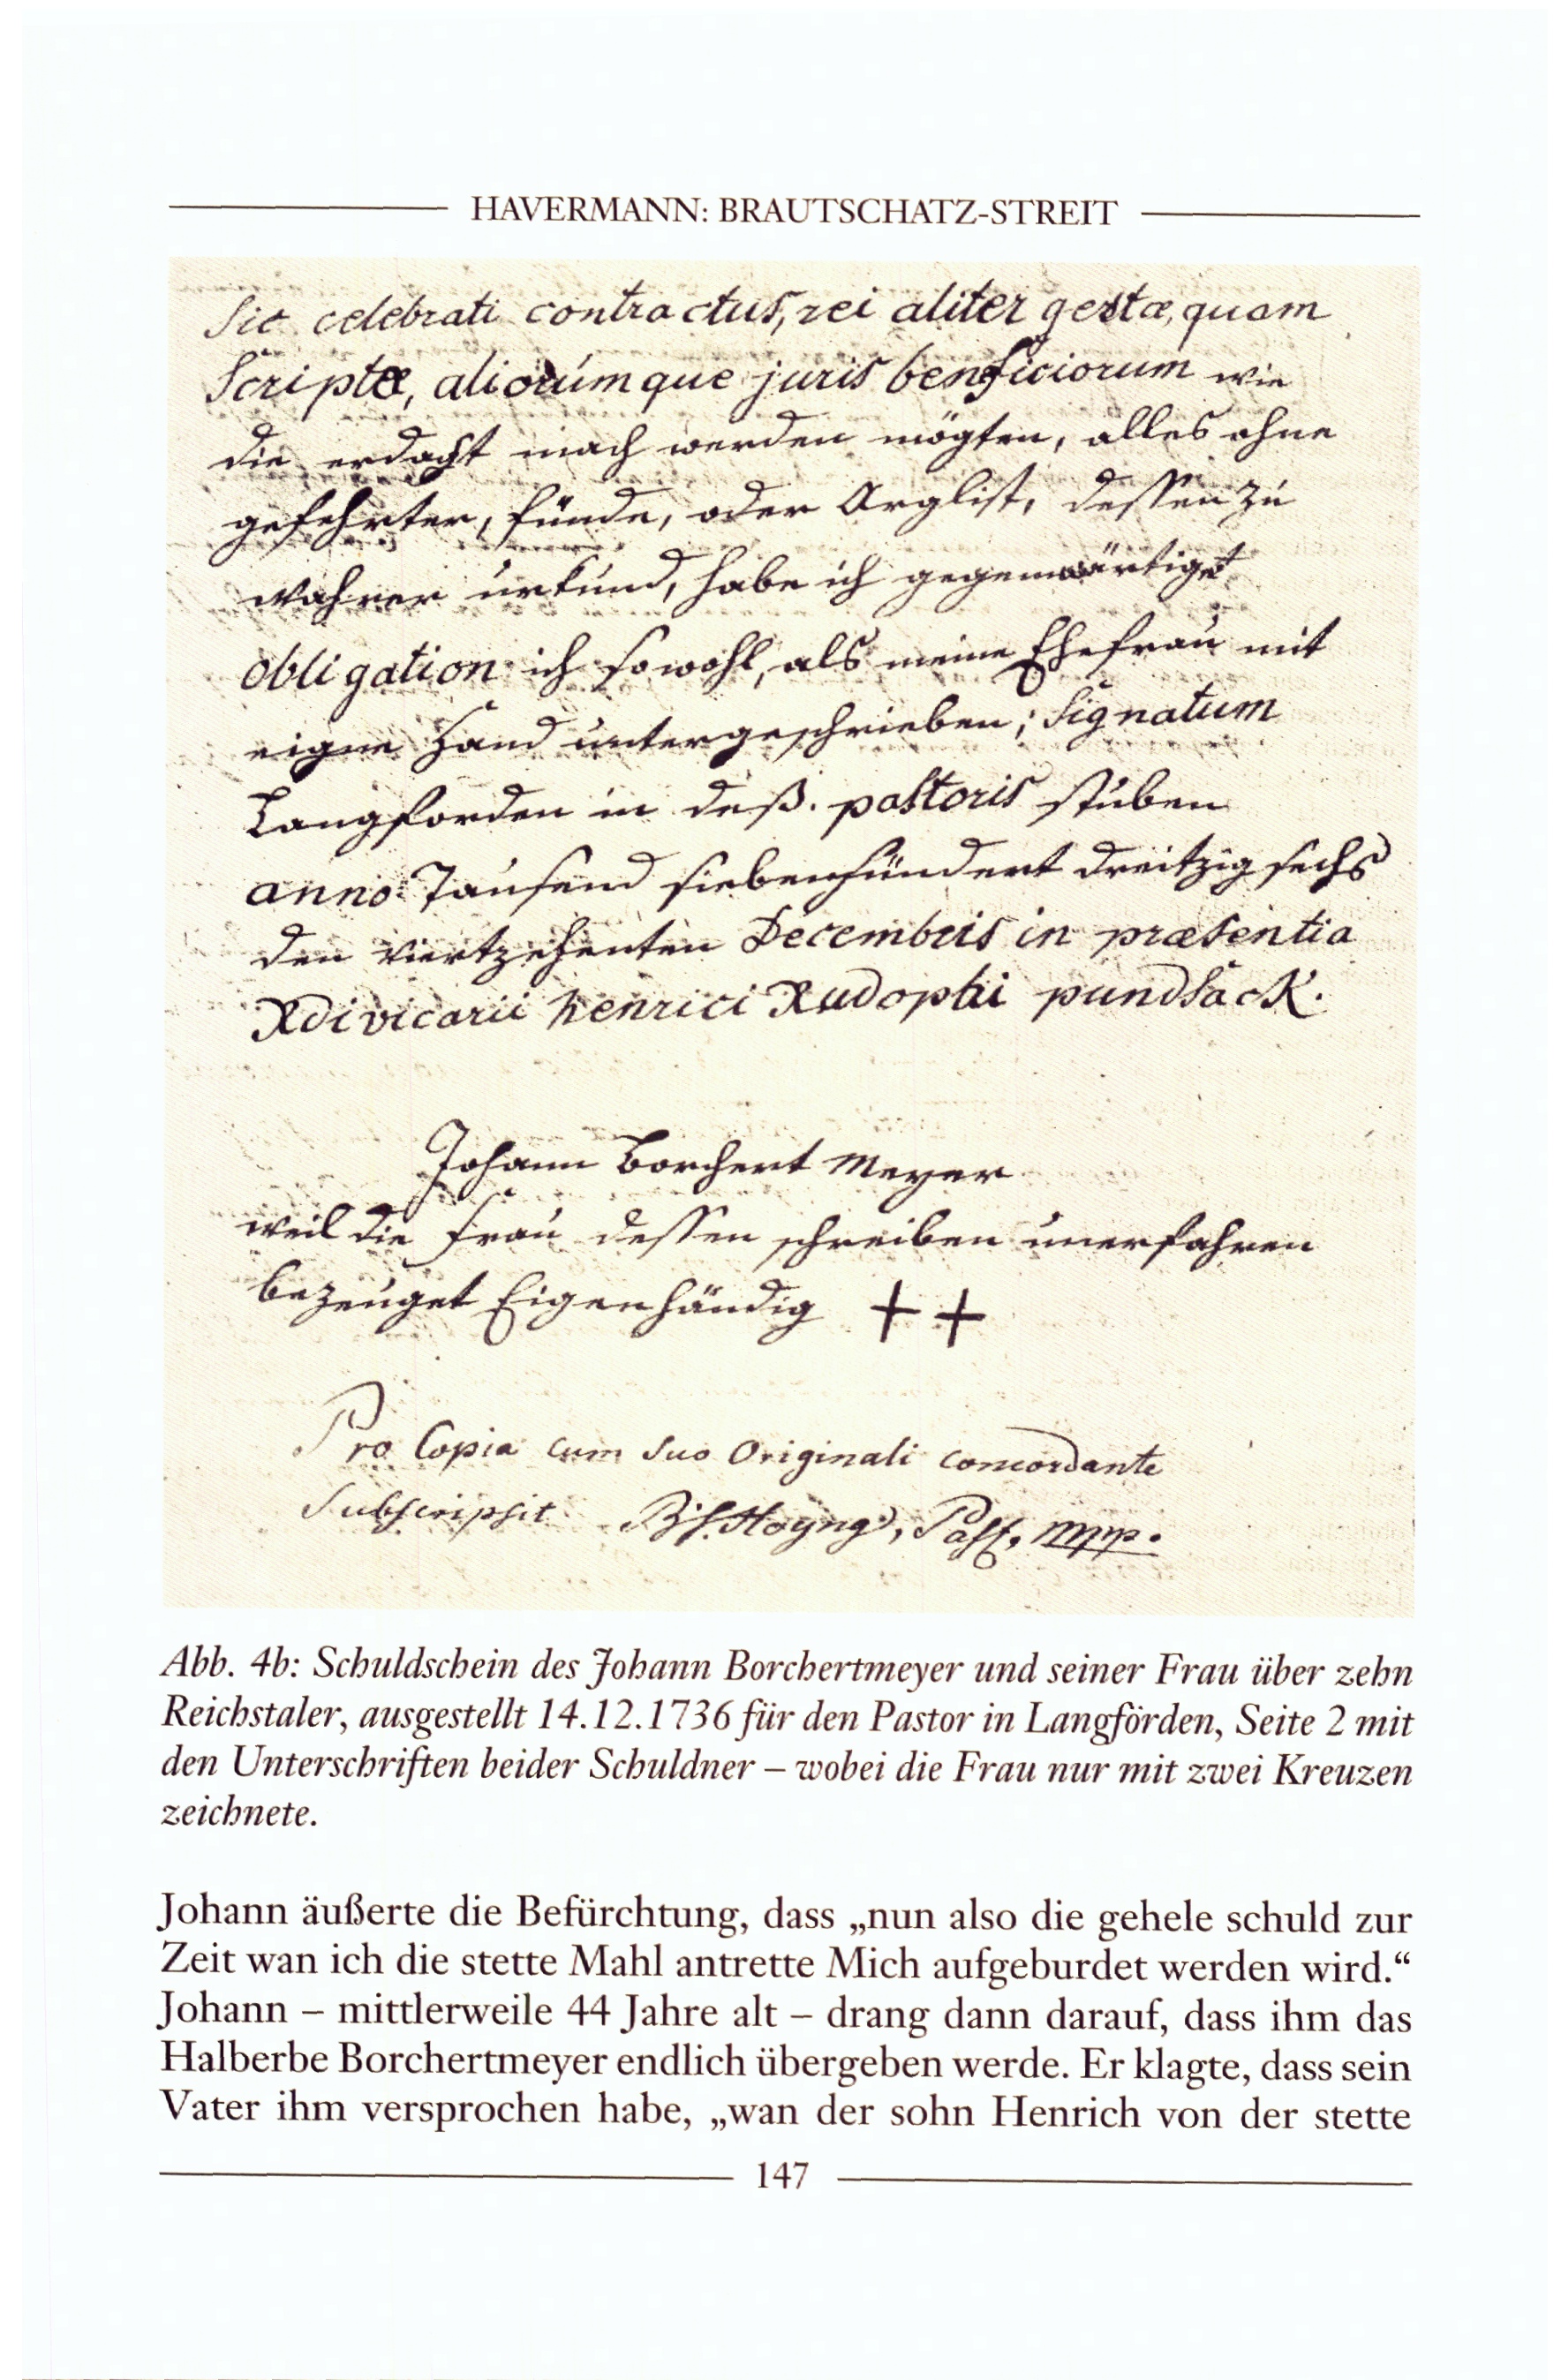 HAVERMANN: BRAUTSCHATZ-STREIT
Sic celebrati contractus, rei aliter gestæ, quam
Scriptæ, aliorumque juris beneficiorum wie
die erdacht mach werden mögten, alles ohne
gefehrter, fünde, oder Arglist, dessen zu
wahrer urkund, habe ich gegenwärtige
obligation ich sowohl, als meine Ehefrau mit
eigne Hand untergeschrieben; Signatum
Langforden in deß. pastoris stuben
anno Tausend siebenhundert dreitzig sechs
den viertzehenten Decembris in præsentia
Rdi vicarii henrici Rudophi pundsack.
Johann Borchert Meyer
weil die Frau dessen schreiben unerfahren
bezeuget Eigenhändig ++
Pro Copia cum suo Originali concordante
Subscripsit Hoyng, Past. mpp.
Abb. 4b: Schuldschein des Johann Borchertmeyer und seiner Frau über zehn
Reichstaler, ausgestellt 14.12.1736 für den Pastor in Langförden, Seite 2 mit
den Unterschriften beider Schuldner – wobei die Frau nur mit zwei Kreuzen
zeichnete.
Johann äußerte die Befürchtung, dass „nun also die gehele schuld zur
Zeit wan ich die stette Mahl antrette Mich aufgeburdet werden wird.“
Johann – mittlerweile 44 Jahre alt – drang dann darauf, dass ihm das
Halberbe Borchertmeyer endlich übergeben werde. Er klagte, dass sein
Vater ihm versprochen habe, „wan der sohn Henrich von der stette
147